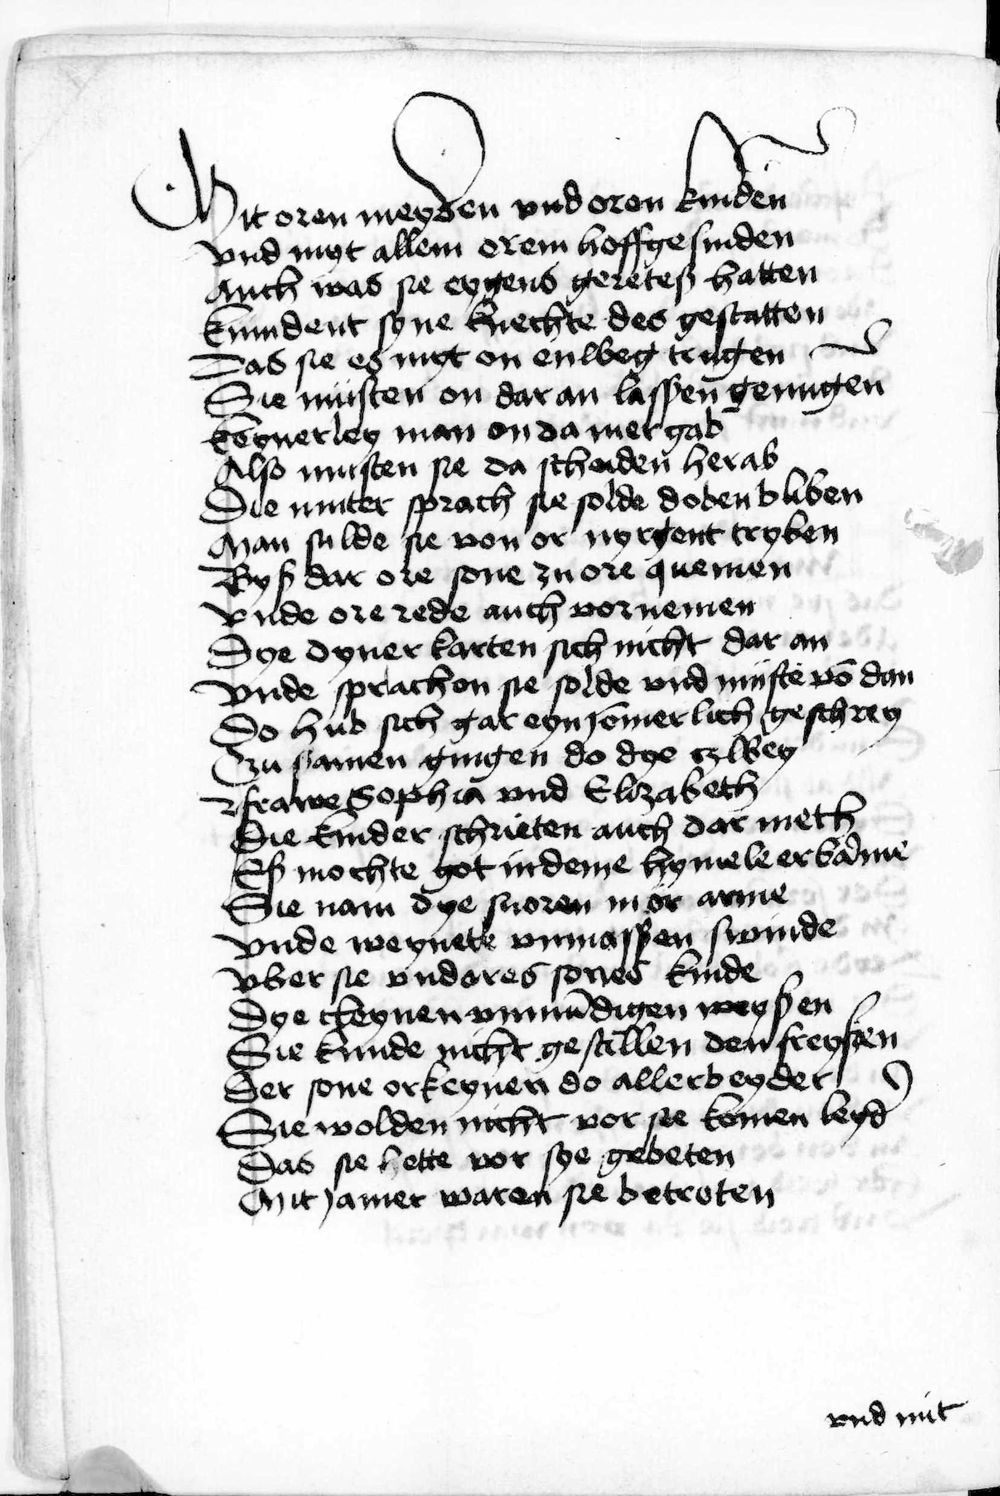 Mit oren meyden vnd oren kinden
vnd myt allem orem hoffgesinden
Auch was sie eygens geretes hatten
kundent syne knechte des gestatten
Das sie es myt on enlbeg trugen
Sie musten on dar an lassen genugen
keynerley man on da mer gab
Also musten sie da scheiden herab
Die muter sprach sie solde doben bliben
Man sulde sie von or nyrgent tryben
Byß dar ore sone zu ore quemen
vnde ore rede auch vornemen
Dye dyner karten sich nicht dar an
vnde sprachen sie solde vnd muste vō dan
Do hub sich gar eyn jomerlich geschrey
Czu samen gingen do dye czlbey
frawe Sophia vnd Elizabeth
Die kinder schrieten auch dar meth
Eß mochte got in deme hymele erbarme
Sie nam dye snoren in or arme
vnde weynete vnmassen swinde
vber sie vnd ores sones kinde
Dye cleynen vnmūdigen weyßen
Sie kunde nicht gestillen den freyßen
Der sone or keynen do aller beyder
Sie wolden nicht vor sie komen leyd
Das sie hette vor sye gebeten
Mit jamer waren sie betroten
vnd mit